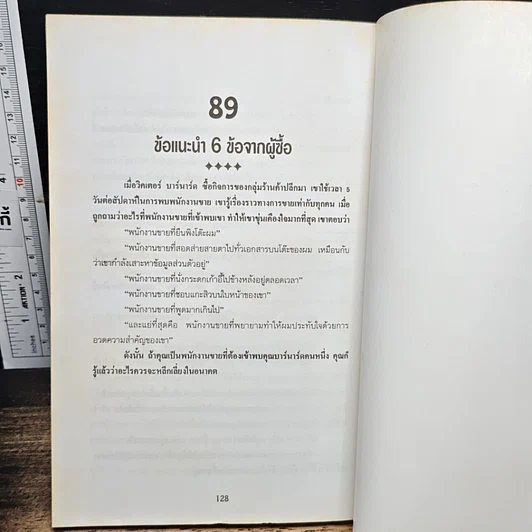 89
ข้อแนะนำ 6 ข้อจากผู้ซื้อ
เมื่อวิคเตอร์ บาร์นาร์ด ซื้อกิจการของกลุ่มร้านค้าปลีกมา เขาใช้เวลา 5
วันต่อสัปดาห์ในการพบพนักงานขาย เขารู้เรื่องราวทางการขายเท่ากับทุกคน เมื่อ
ถูกถามว่าอะไรที่พนักงานขายที่เข้าพบเขา ทำให้เขาขุ่นเคืองใจมากที่สุด เขาตอบว่า
"พนักงานขายที่ยืนพิงโต๊ะผม"
"พนักงานขายที่สอดส่ายสายตาไปทั่วเอกสารบนโต๊ะของผม เหมือนกับ
ว่าเขากำลังเสาะหาข้อมูลส่วนตัวอยู่"
"พนักงานขายที่นั่งกระดกเก้าอี้ไปข้างหลังอยู่ตลอดเวลา"
"พนักงานขายที่ชอบแกะสิวบนใบหน้าของเขา"
"พนักงานขายที่พูดมากเกินไป"
"และแย่ที่สุดคือ พนักงานขายที่พยายามทำให้ผมประทับใจด้วยการ
อวดความสำคัญของเขา"
ดังนั้น ถ้าคุณเป็นพนักงานขายที่ต้องเข้าพบคุณบาร์นาร์ดคนหนึ่ง คุณก็
รู้แล้วว่าอะไรควรจะหลีกเลี่ยงในอนาคต
128